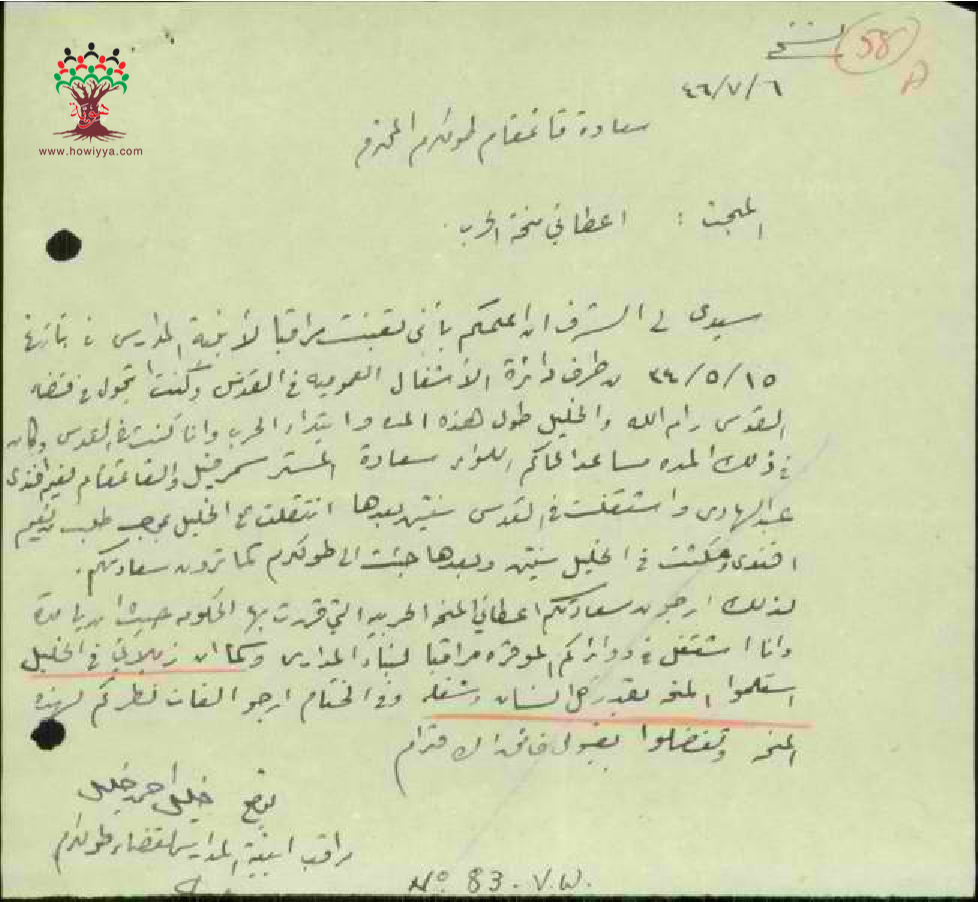 58
A
هوية
www.howiyya.com
٤٦/٧/٦
سعادة قائمقام طولكرم المحترم
المبحث : اعطائي منحة الحرب
سيدي لي الشرف ان اعلمكم بأنني تعينت مراقبا لأبنية المدارس بتاريخ
٣٤/٥/١٥ من طرف دائرة الأشغال العموميه في القدس وكنت اتجول في قضاء
القدس رام الله والخليل طول هذه المده وابتداء الحرب وانا كنت في القدس وكان
في ذلك المده مساعد الحاكم اللواء سعادة المستر والقائمقام افندي
عبد الهادي واشتغلت في القدس سنتين بعدها انتقلت الى الخليل بموجب طلب
افندي ومكثت في الخليل سنتين وبعدها جئت الى طولكرم كما ترون سعادتكم.
لذلك ارجو من سعادتكم اعطائي المنحه الحربيه التي قررت بها الحكومه حيث
وانا اشتغل في دوائركم الموقره مراقبا لبناء المدارس وكما ان زملائي في الخليل
استلموا المنحه بقدر كل انسان وشغله وفي الختام ارجو الفات نظركم لهذه
المنحه وتفضلوا بقبول فائق الاحترام
توقيع خليل احمد خليل
مراقب ابنية المدارس لقضاء طولكرم
No 83. V.W.